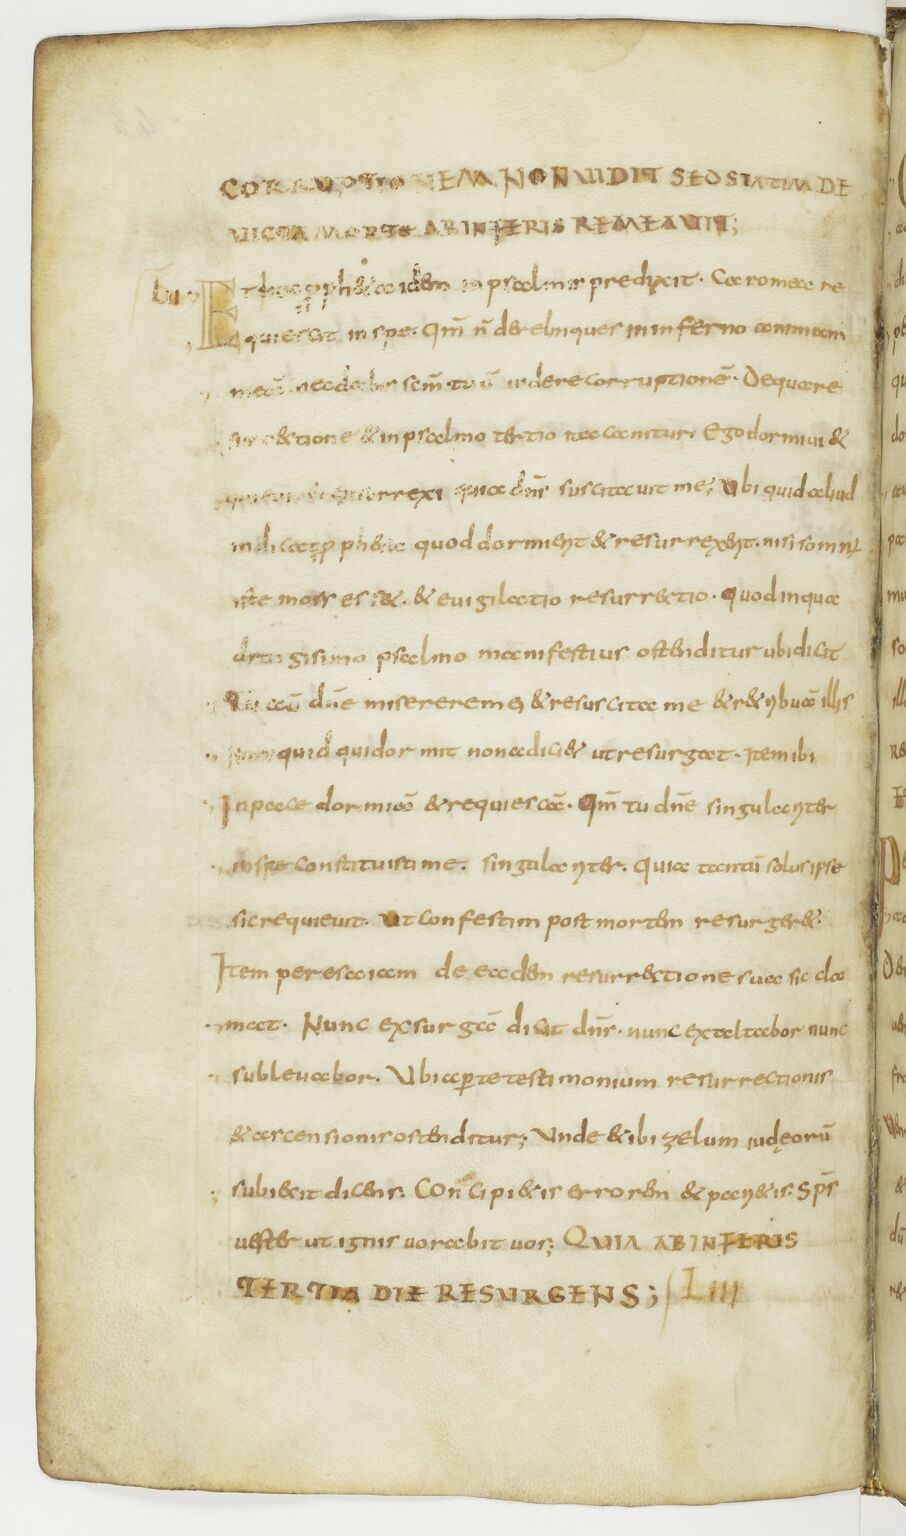 CORRUPTIONEM NON UIDIT SED STATIM DE
UICTA MORTE AB INFERIS REMEAUIT;
Lii Et propph&a idem in psalmis predixit. Caro mea re
quiescit in spe. Qm̄ ñ derelinques in inferno animam
meā nec dabis scm̄ tuū uidere corruptionē. De qua re
surr&tione & in psalmo tertio ita canitur. Ego dormiui &
quieui & resurrexi quia dn̄s suscitauit me; Ubi quid aliud
indicat pph&a quod dormiens & resurrexit. nisi somnus
iste mors ess&. & euigilatio resurr&tio. Quod in qua
dragisimo psalmo manifestius ostenditur ubi dicit
Tu aū dn̄e miserere mei & resuscita me & r&ribuā illis
Numquid qui dormit non adici& ut resurgat. Item ibi
In pace dormiā & requiescā. Qm̄ tu dn̄e singulariter
in spe constituisti me. singulariter. Quia tantū solus ipse
sic requieuit. Ut confestim post mortem resurger&.
Item per esaiam de eadem resurrectione sua sic cla
mat. Nunc exsurgā dicit dn̄s. nunc exaltabor nunc
subleuabor. Ubi aperte testimonium resurrectionis
& ascensionis ostenditur; Unde & ibi zelum iudęorū
subiecit dicens. Concipi&is errorem & pari&is. sp̄s
uester ut ignis uorabit uos; QUIA AB INFERIS
TERTIA DIE RESURGENS; Liii